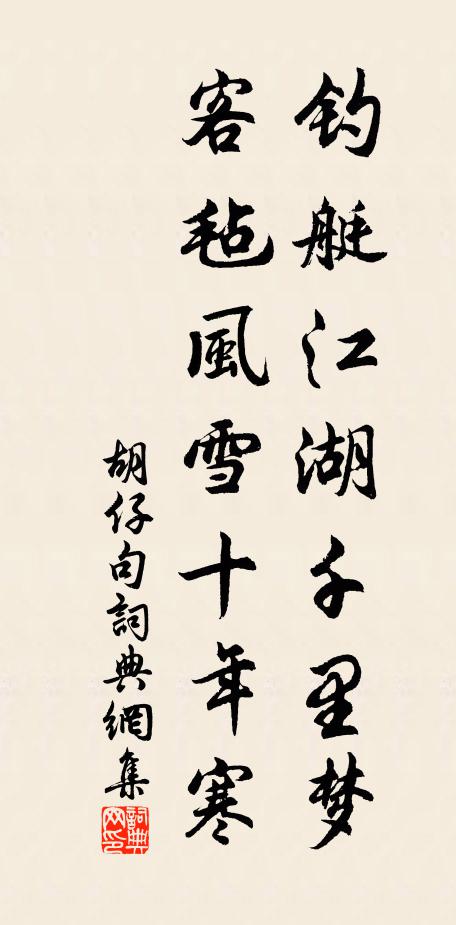 钓艇江湖千里梦
客毡風雪十年寒
胡仔句詞典網集
詞典網印